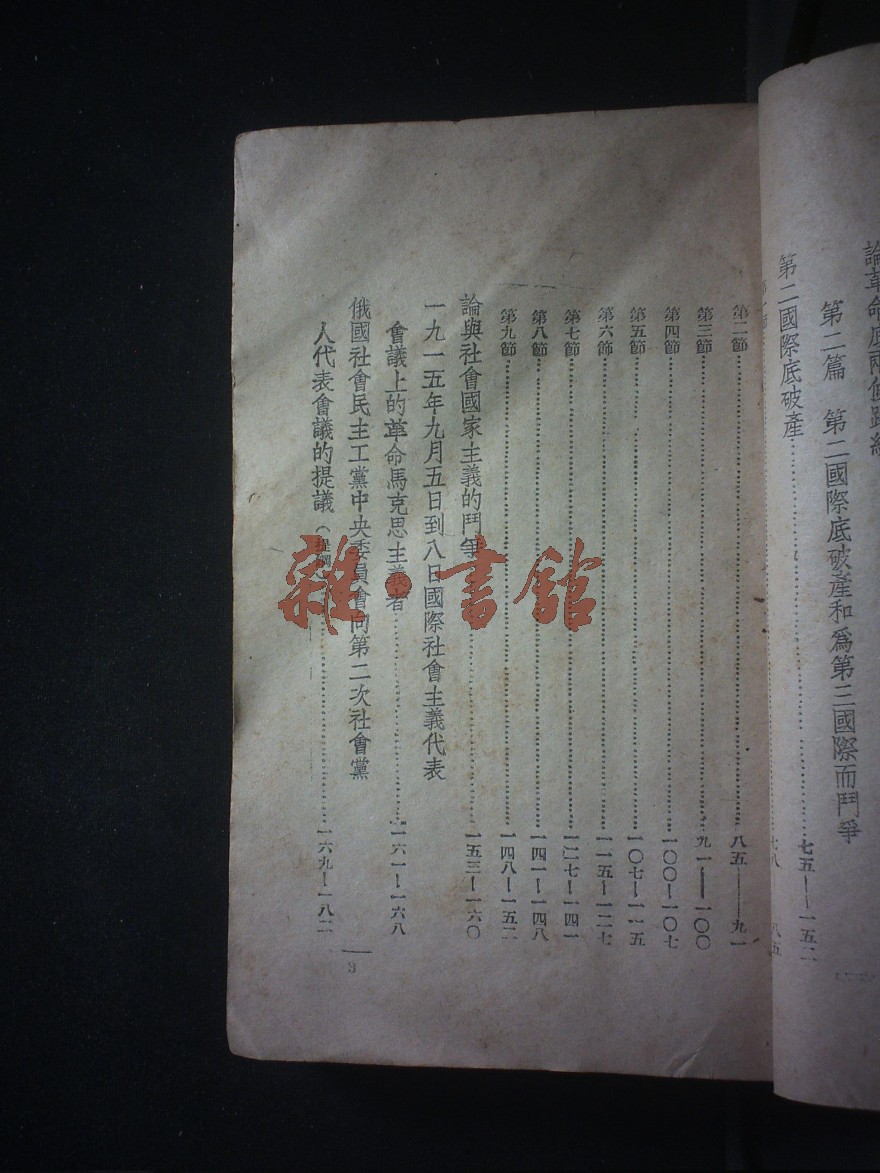 論革命底兩條路線
第二篇 第二國際底破產和爲第三國際而鬥爭
第二國際底破產……七五—一五二
第一節……七八 八五
第二節……八五—九一
第三節……九一—一〇〇
第四節……一〇〇—一〇七
第五節……一〇七—一一五
第六節……一一五—一二七
第七節……一二七—一四一
第八節……一四一—一四八
第九節……一四八—一五二
論與社會國家主義的鬥爭……一五三—一六〇
一九一五年九月五日到八日國際社會主義代表
會議上的革命馬克思主義者……一六一—一六八
俄國社會民主工黨中央委員會向第二次社會黨
人代表會議的提議（提綱）……一六九—一八二
3
雜·書館